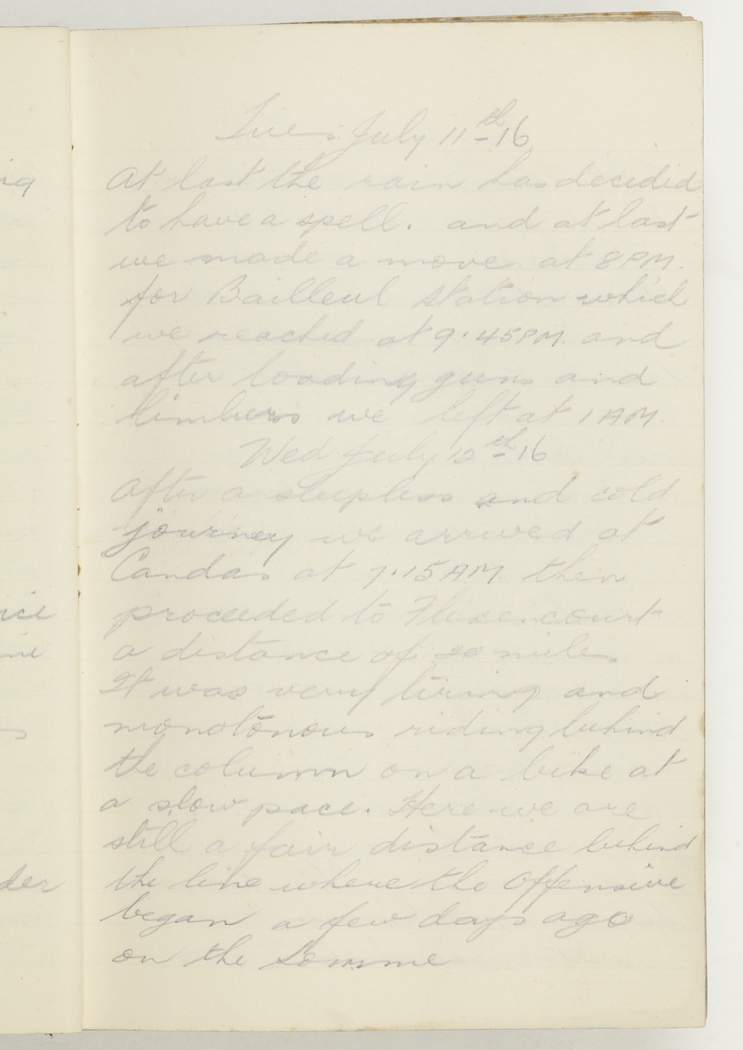 Tues. July 11th 16
At last the rain has decided
to have a spell. and at last
we made a move at 8 PM.
for Bailleul station which
we reached at 9.45 PM. and
after loading guns and
limbers we left at 1 AM.
Wed July 12th 16
After a sleepless and cold
journey we arrived at
Candas at 7.15 AM then
proceeded to Flixencourt
a distance of 20 miles
It was very tiring and
monotonous riding behind
the column on a bike at
a slow pace. Here we are
still a fair distance behind
the line where the offensive
began a few days ago
on the Somme
ng
der